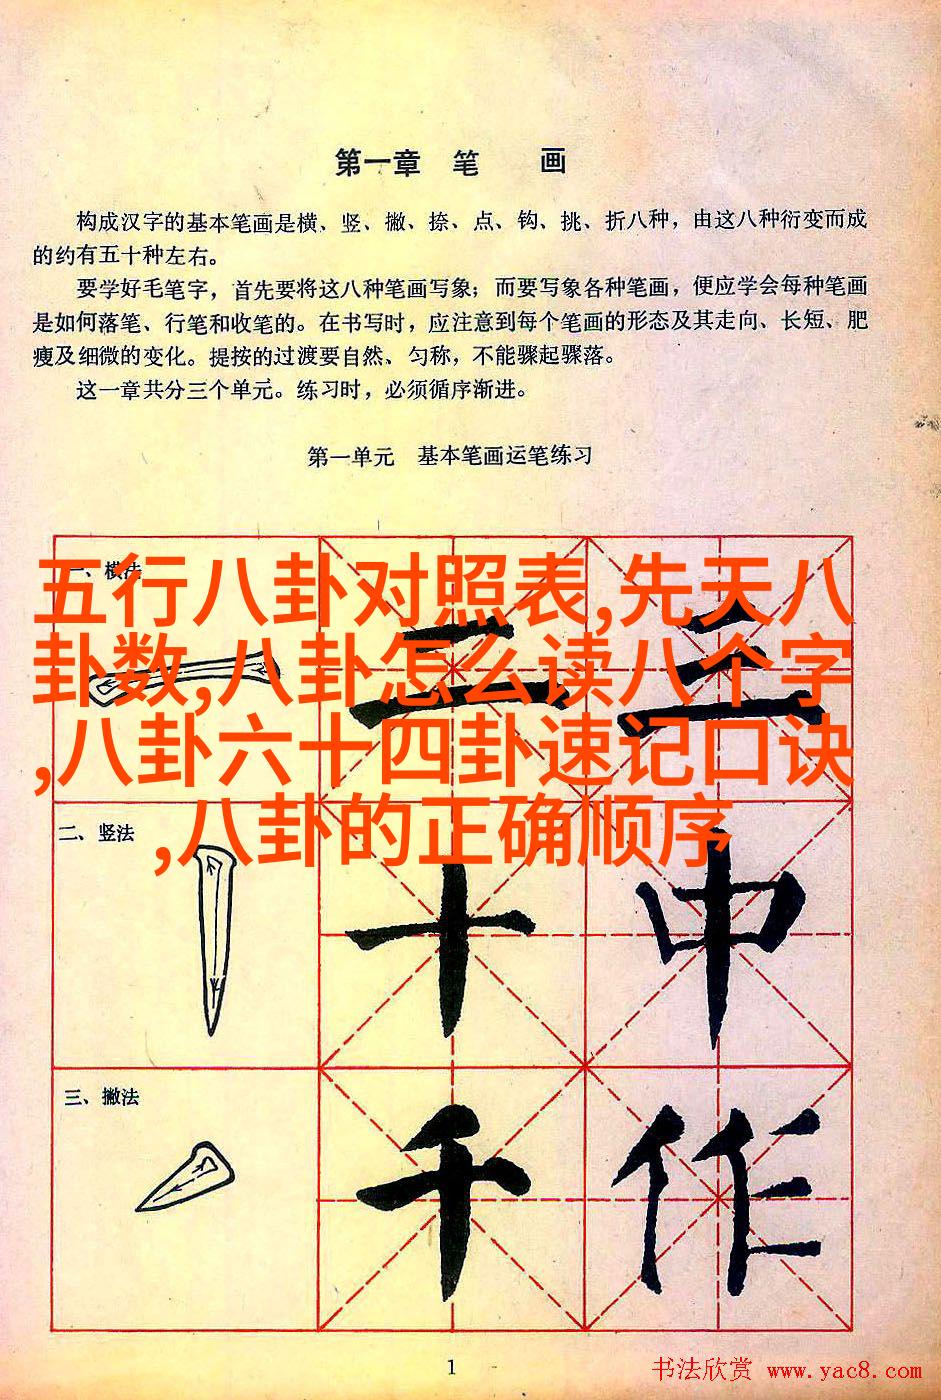 第一章 笔 画
构成汉字的基本笔画是横、竖、撇、捺、点、钩、挑、折八种，由这八种衍变而成
的约有五十种左右。
要学好毛笔字，首先要将这八种笔画写象；而要写象各种笔画，便应学会每种笔画
是如何落笔、行笔和收笔的。在书写时，应注意到每个笔画的形态及其走向、长短、肥
瘦及细微的变化。提按的过渡要自然、匀称，不能骤起骤落。
这一章共分三个单元。练习时，必须循序渐进。
第一单元 基本笔画运笔练习
一、横法
二 三
五行八卦对照表,先天八
卦数,八卦怎么读八个字
,八卦六十四卦速记口诀
,八卦的正确顺序
二、竖法
十 中
三、撇法
千 作
1
书法欣赏 www.yac8.com